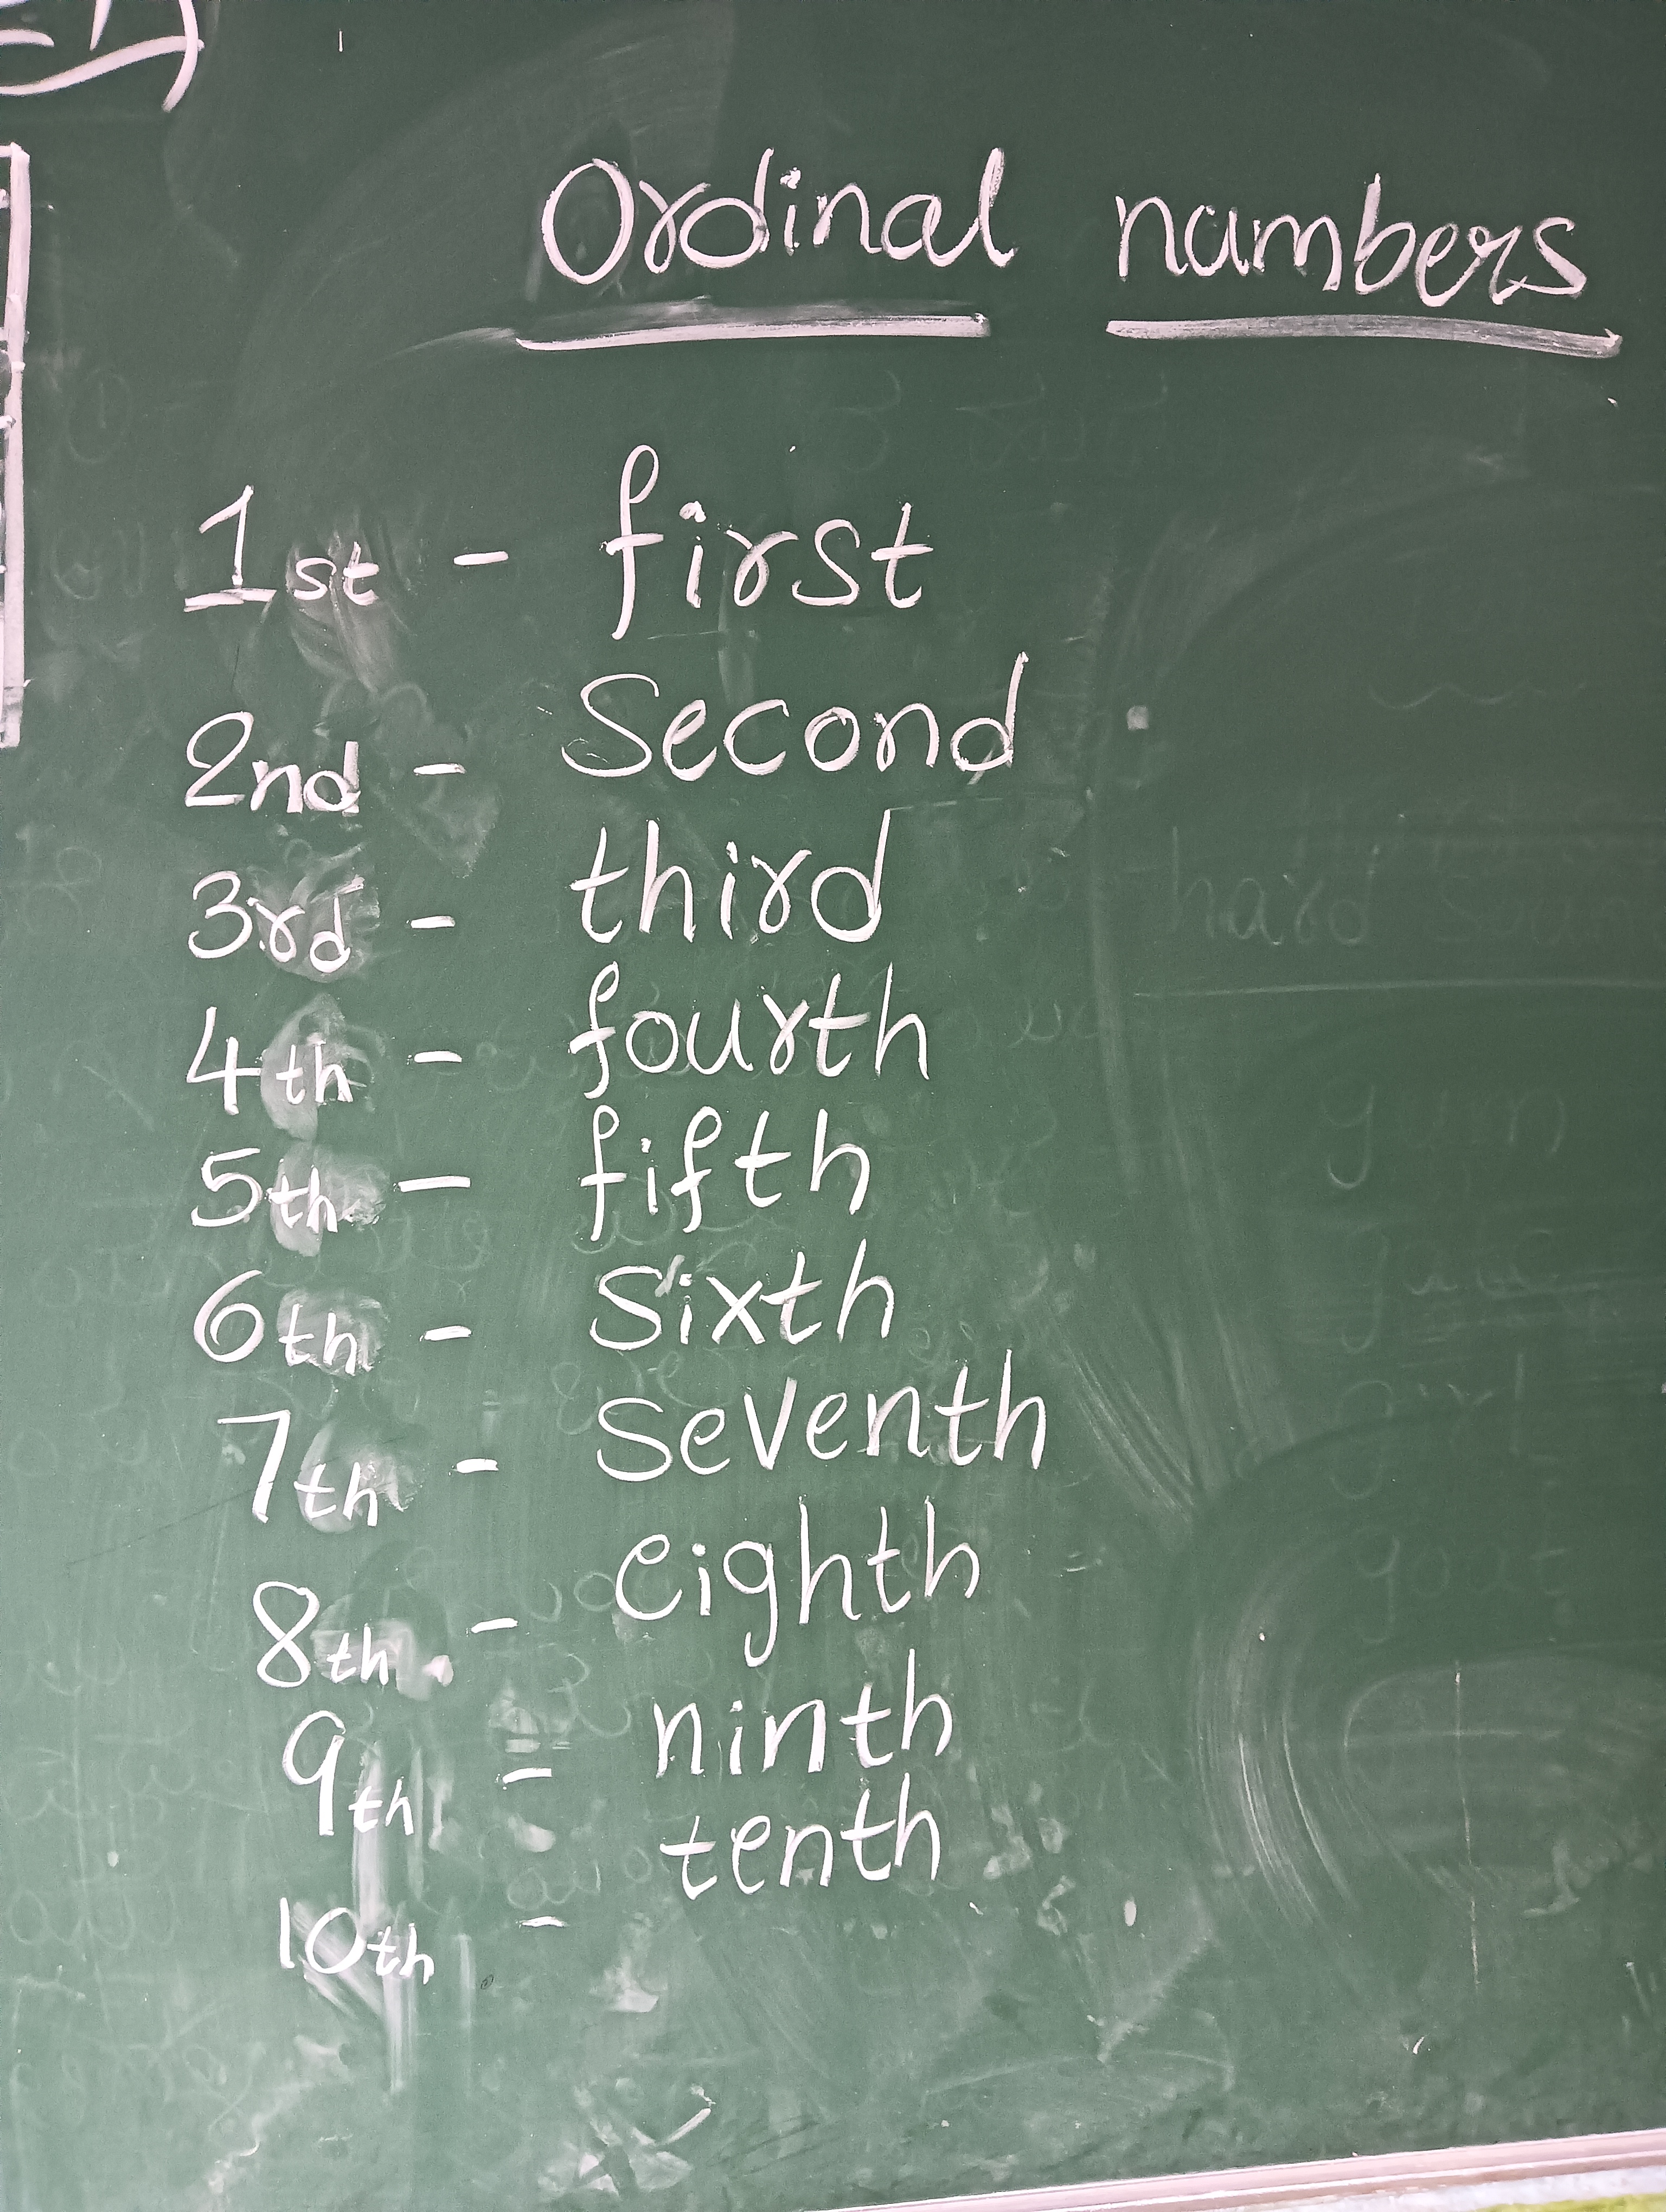 Ordinal numbers
1st - first
2nd - Second
3rd - third
4th - fourth
5th - fifth
6th - sixth
7th - seventh
8th - eighth
9th - ninth
10th - tenth
hard